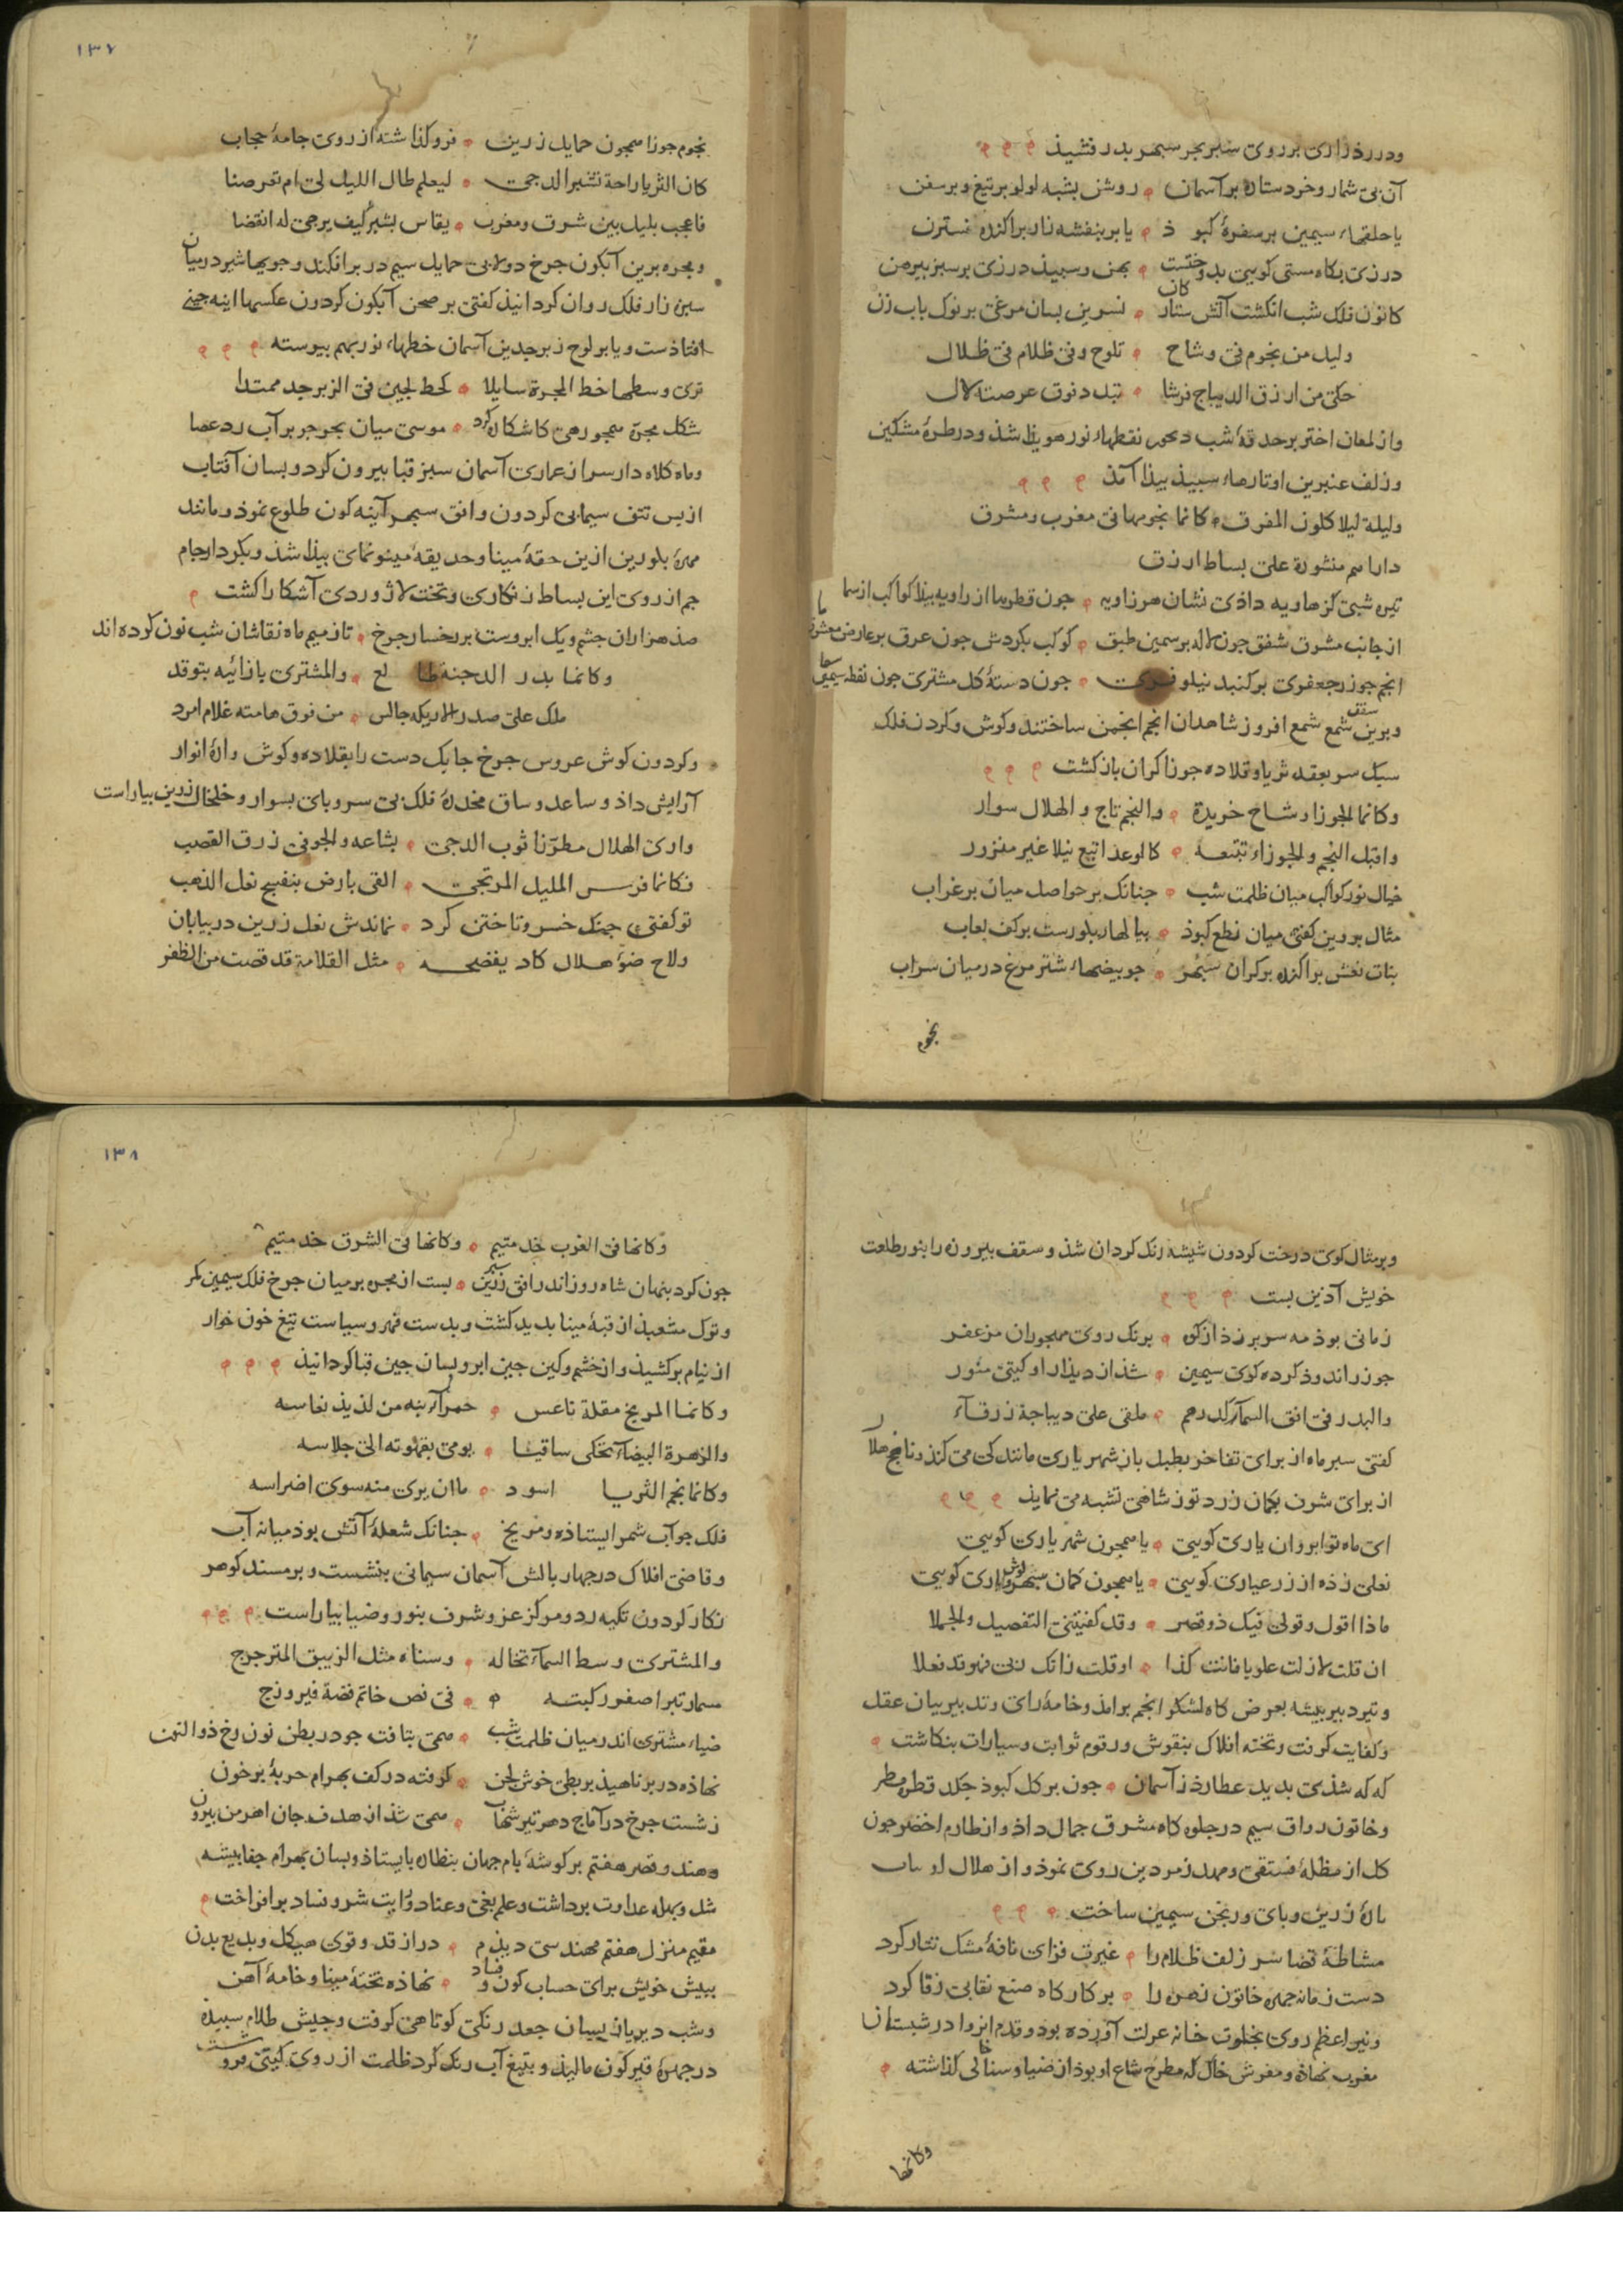 ودرر دراری بر روی سبز بحر سبهر بدرفشید
آن بی شمار وخرد ستاره بر آسمان روشن بشبه لولو بر تیغ وبر سفن
یا حلقهاء سیمین بر سفرهٔ کبو ذ یا بر بنفشه زار براکنده نسترن
درزی بکاه مستی کویی بدوختست بهن وسبیذ درزی بر سبز بیرهن
کانون فلک شب انکشت آتش ستاره نسرین بسان مرغی بر نوک باب زن
ولیل من نجوم فی وشاح تلوح وفی ظلام فی ظلال
حکی من ازرق الدیباج فرشا تبدد فوق عرصته لال
واز لمعان اختر بر حدقهٔ شب دیجور نقطهاء نور هویذا شذ ودر طرهٔ مشکین
وزلف عنبرین او تارهاء سبیذ بیذا آمذ
ولیلة لیلا کلون المفرق کانما نجومها فی مغرب ومشرق
دراهم منثورة علی بساط ازرق
تیره شبی کز هاویه داذی نشان هر زاویه جون قطرها از راویه بیذا کواکب از سما
از جانب مشرق شفق جون لاله بر سمین طبق کوکب بکردش جون عرق بر عارض معشوق ما
انجم جو زر جعفری بر کنبد نیلوفری جون دستهٔ کل مشتری جون نقطه سیمین سها
وبرین سقف شمع شمع افروز شاهدان انجم انجمن ساختند وکوش وکردن فلک
سبک سر بعقد ثریا وقلاده جوزا کران بار کشت
وکانما الجوزا وشاح خریدة والنجم تاج والهلال سوار
واقبل النجم والجوزاء تتبعه کالوعد اتبع نیلا غیر منزور
خیال نور کواکب میان ظلمت شب جنانک بر حواصل میان بر غراب
مثال بروین کفتی میان نطع کبوذ بیالهاء بلورست بر کف لعاب
بنات نعش براکنده بر کران سبهر جو بیضهاء شتر مرغ در میان سراب
نجوم
۱۳۷
نجوم جوزا همجون حمایل زرین فروکذاشته از روی جامهٔ حجاب
کان الثریا راحة تشبر الدجی لیعلم طال اللیل لی ام تعرضا
فاعجب بلیل بین شرق ومغرب یقاس بشبر کیف یرجی له انقضا
ومجره برین آبکون جرخ دولابی حمایل سیم در بر افکند وجویها شیر در میان
سبزه زار فلک روان کردانیذ کفتی بر صحن آبکون کردون عکسها اینه جینی
افتاذست ویا بر لوح زبرجدین آسمان خطهاء نور بهم بیوسته
تری وسطها خط المجرة سایلا کخط لجین فی الزبرجد ممتدا
شکل مجره همجو رهی کاشکاره کرد موسی میان بحر جو بر آب زد عصا
وماه کلاه دار سر از عماری آسمان سبز قبا بیرون کرد وبسان آفتاب
از بس تتق سیمابی کردون وافق سبهر آینه کون طلوع نموذ ومانند
مهرهٔ بلورین ازین حقهٔ مینا وحدیقهٔ مینو نمای بیذا شذ وبکردار جام
جم از روی این بساط زنکاری وتخت لاژوردی آشکارا کشت
صذ هزاران جشم ویک ابروست بر رخسار جرخ تا ز میم ماه نقاشان شب نون کرده اند
وکانما بدر الدجنة طا لع والمشتری بازائیه یتوقد
ملک علی صدر الاریکه جالس من فوق هامته غلام امرد
وکردون کوش عروس جرخ جابک دست را بقلاده وکوش وارهٔ انوار
آرایش داذ وساعد وساق مخدرهٔ فلک بی سر وبای بسوار وخلخال زرین بیاراست
واری الهلال مطرزا ثوب الدجی بشاعه والجو فی زرق القصب
فکانما فرس الملیل المرتجی القی بارض بنفسج نعل الذهب
تو کفتی جنک خسرو تاختن کرد نماندش نعل زرین در بیابان
ولاح ضوء هلال کاد یفضحه مثل القلامة قد قصت من الظفر
وبر مثال کوی درخت کردون شیشه رنک کردان شذ وسقف بیروزه را بنور طلعت
خویش آذین بست
زمانی بوذ مه سر بر زذ از کوه برنک روی مهجوران مزعفر
جو زر اندوذ کرده کوی سیمین شذ از دیذار او کیتی منور
والبدر فی افق السماء کدرهم ملقی علی دیباجة زرقاء
کفتی سبر ماه از برای تفاخر بطبل باز شهریاری مانندکی می کند ونافجهٔ هلال
از برای شرف بکمان زرد توز شاهی تشبه می نماید
ای ماه تو ابروان یاری کویی یا همجون شهریاری کویی
نعلی زذه از زر عیاری کویی یا همجون کمان سبهر کوشواری کویی
ماذا اقول وقولی فیک ذو قصر وقد کفیتنی التفصیل والجملا
ان قلت لا زلت علویا فانت کذا او قلت زانک ربی فهو قد فعلا
وتیر دبیر بیشه بعرض کاه لشکر انجم برامذ وخامهٔ رای وتدبیر ببیان عقل
وکفایت کرفت وتخته افلاک بنقوش ورقوم ثوابت وسیارات بنکاشت
که که شذی بدید عطارذ ز آسمان جون بر کل کبوذ جکد قطره مطر
وخاتون رواق سیم در جلوه کاه مشرق جمال داذ واز طارم اخضر جون
کل از مظلهٔ فستقی ومهد زمردین روی نموذ واز هلال او
یارهٔ زرین وبای ورنجن سیمین ساخت
مشاطهٔ قضا سر زلف ظلام را غیرت فزای نافهٔ مشک تتار کرد
دست زمانه جهره خاتون زهره را بر کارکاه صنع نقابی زقا کرد
ونیر اعظم روی بخلوت خانه عزلت آورده بود وقدم انزوا در شبستان
مغرب نهاذه ومفرش خاک که مطرح شاع او بوذ از ضیا وسنا خالی کذاشته
وکانها
۱۳۸
وکانها فی الغرب خد متیم وکانها فی الشرق خد متیم
جون کرد بنهان شاه روز اندر افق زرین سبر بست از مجره بر میان جرخ فلک سیمین کمر
وتوک مشعبذ از قبهٔ مینا بدید کشت وبدست قهر وسیاست تیغ خون خوار
از نیام برکشیذ واز خشم وکین جین ابرو بسان جین قبا کردانیذ
وکانما المریخ مقلة ناعس حمراء ینبه من لذیذ نعاسه
والزهرة البیضاء تحکی ساقیا یومی بقهوته الی جلاسه
وکانما نجم الثریا اسود ما ان یری منه سوی اضراسه
فلک جو آب شمر ایستاذه ومریخ جنانک شعلهٔ آتش بوذ میانه آب
وقاضی افلاک در جهار بالش آسمان سیمابی بنشست وبر مسند کوهر
نکار کردون تکیه زد ومرکز عز وشرف بنور وضیا بیاراست
والمشتری وسط السماء تخاله وسناه مثل الزیبق المترجرج
مسمار تبر اصفر رکبته فی فص خاتم فضة فیروزج
ضیاء مشتری اندر میان ظلمت شب همی بتافت جو در بطن نون رخ ذوالنون
نهاذه در بر ناهیذ بربطی خوش لحن کرفته در کف بهرام حربهٔ بر خون
ز شست جرخ در آماج دهر تیر شهاب همی شذ از هدف جان اهرمن بیرون
وهندو قصر هفتم بر کوشهٔ بام جهان بنظاره بایستاذ وبسان بهرام جفا بیشه
شل وبیله عداوت برداشت وعلم بغی وعناد ورایت شر وفساد برافراخت
مقیم منزل هفتم مهندسی دیذم دراز قد وقوی هیکل وبدیع بدن
ببیش خویش برای حساب کون وفساد نهاذه تختهٔ مینا وخامهٔ آهن
وشب دیریاز بسان جعد زنکی کوتاهی کرفت وجیش ظلام سبیده
در جهرهٔ قیرکون مالیذ وبتیغ آب رنک کرد ظلمت از روی کیتی فرو شست